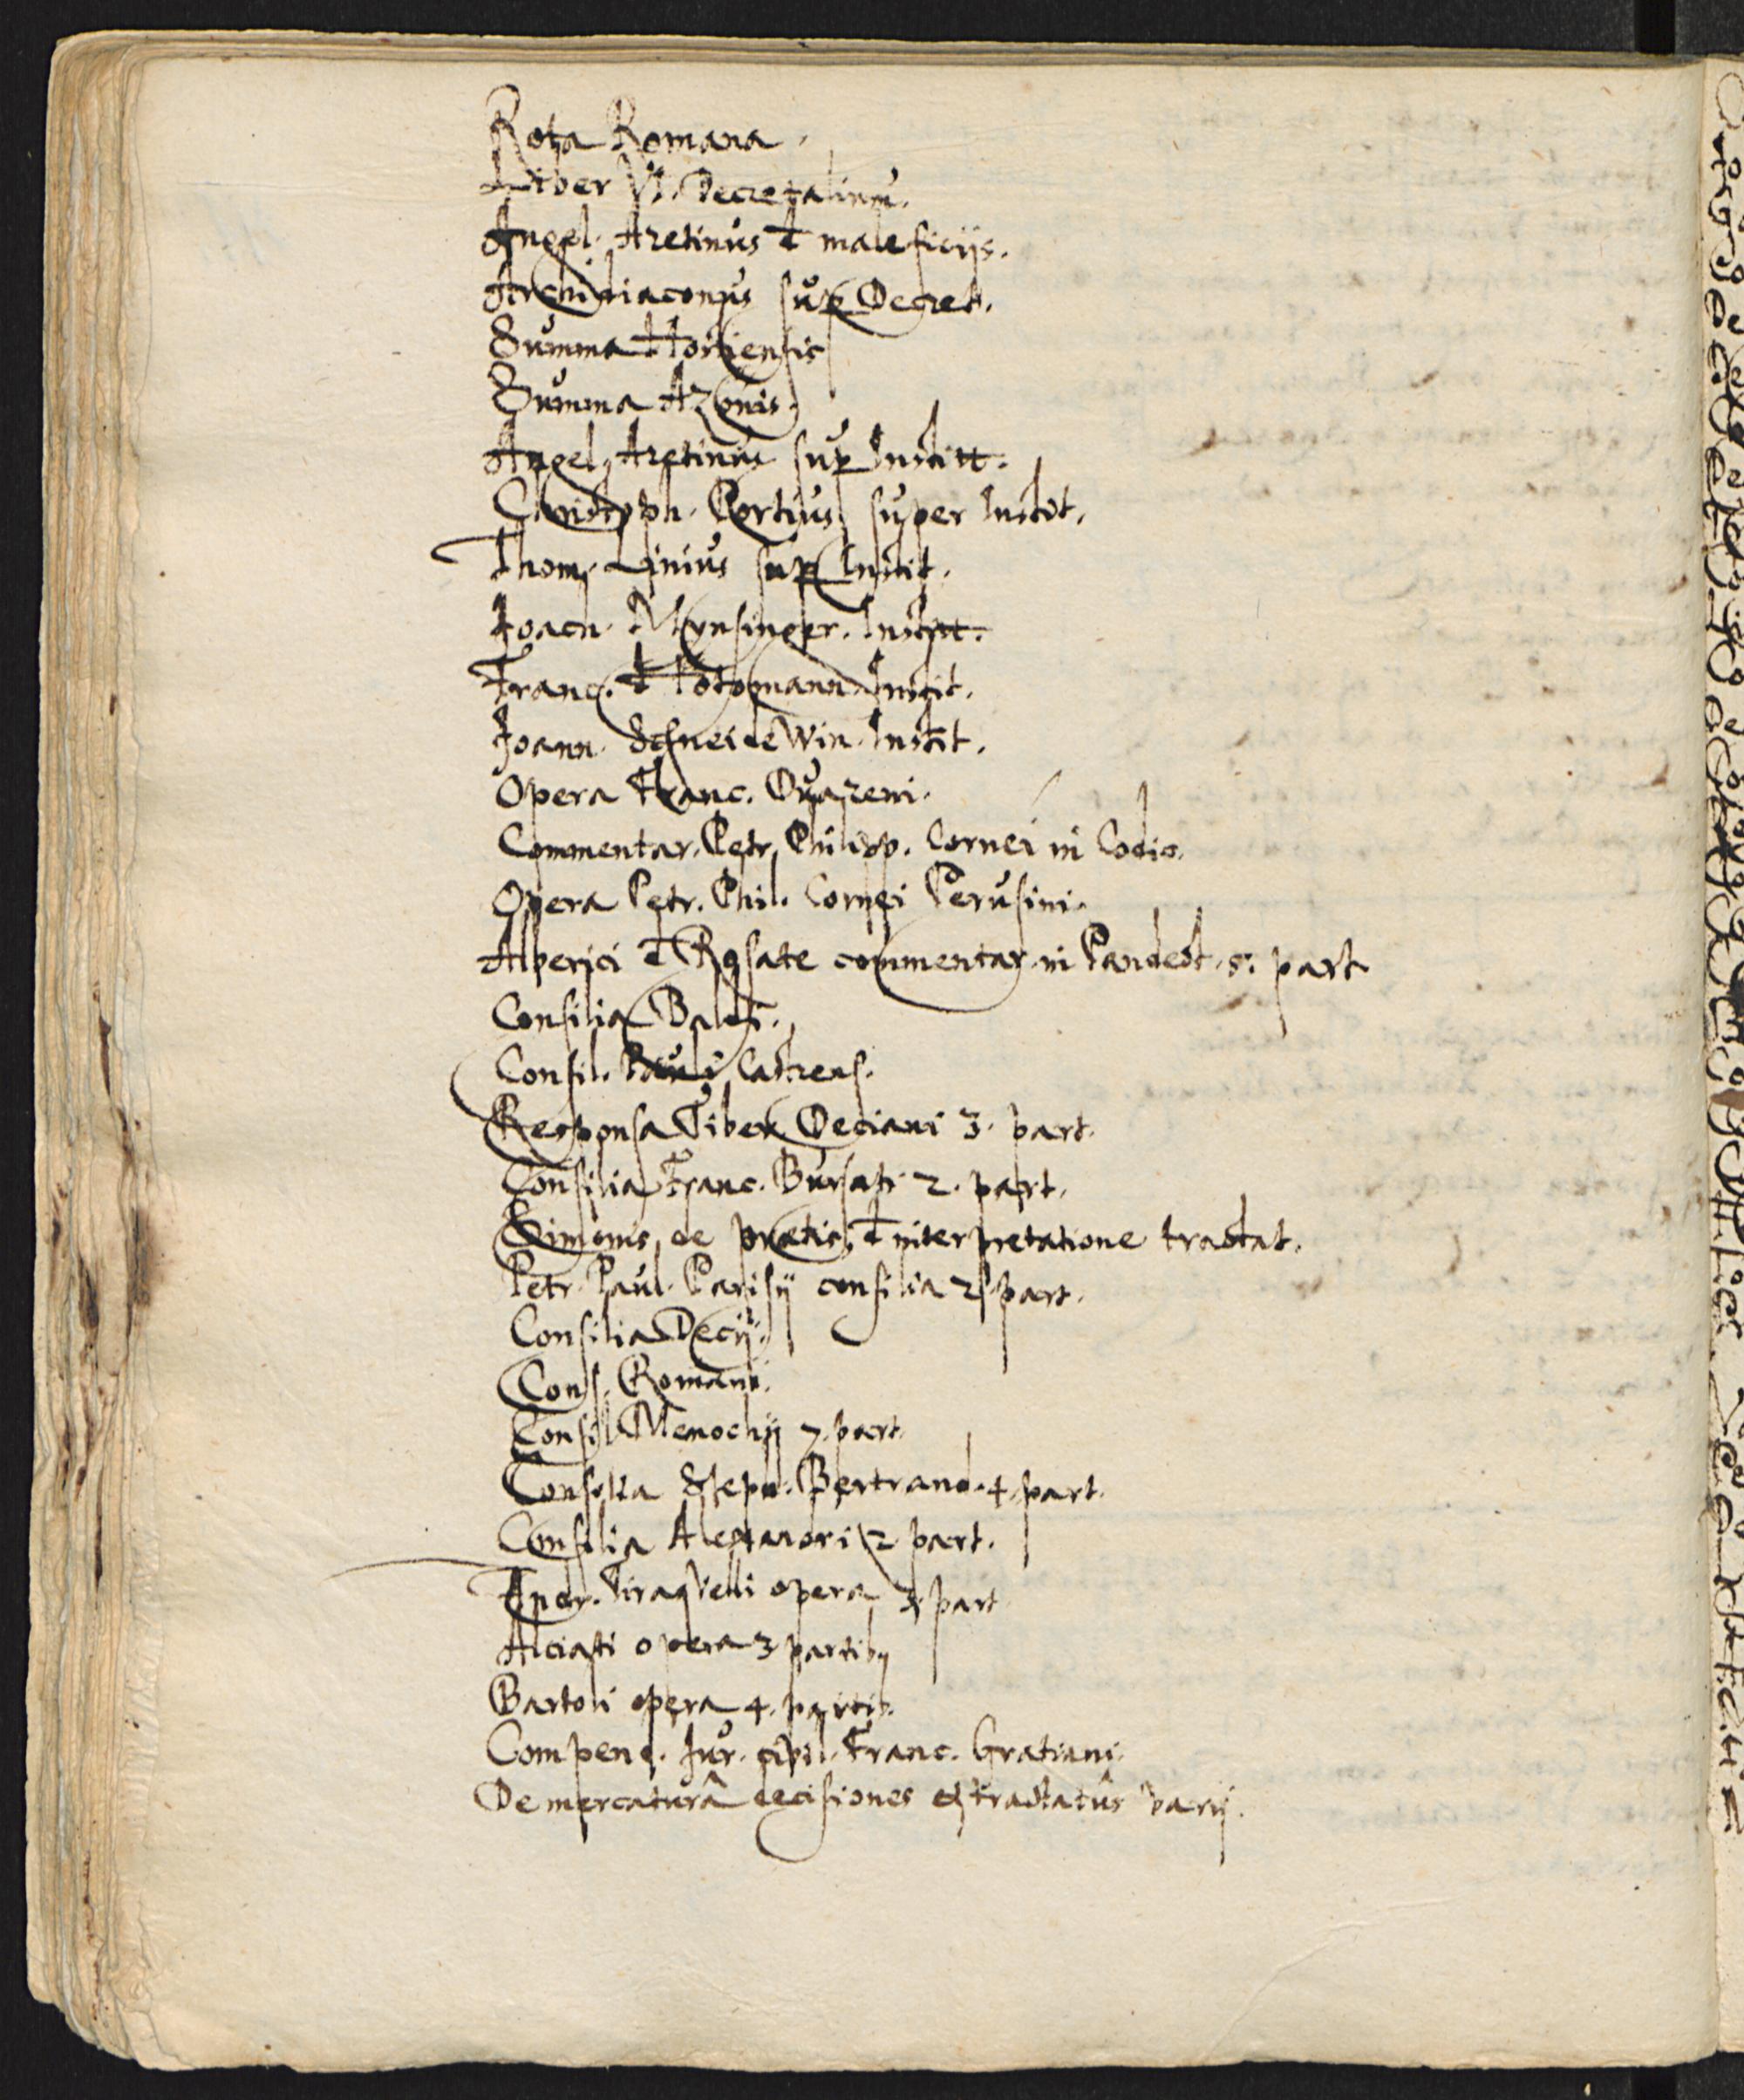 Rota Romana.
Liber VI. Decretalium.
Angel. Aretinus đ maleficijs.
Archidiaconus sup Decret.
Summa Hostiensis
Summa Azonis.
Angel. Aretinus sup Institt.
Christoph. Portius super Instit.
Thom. Linius sup Instit.
Joach. Mynsinger. Institt.
Franc. Hotomann. Instit.
Joann. Schneidewin. Instit.
Opera Franc. Duareni.
Commentar. Petr. Philipp. Cornei in Codic.
Opera Petr. Phil. Cornei Perusini.
Alberici đ Rosate commentar. in Pandect. 5. part
Consilia Baldi.
Consil. Pauli Castrens.
Responsa Tiber. Deciani 3. part.
Consilia Franc. Bursati 2. part.
Simonis de praetis, đ interpretatione tractat.
Petr. Paul. Parisij consilia 2. part.
Consilia Decij.
Cons. Romani.
Consil. Menochij 7. part.
Consilia Steph. Bertrand. 4. part.
Consilia Alexandri 2 part.
Andr. Tiraqvelli opera part
Alciati opera 3 partib9
Bartoli opera 4. partib.
Compend. Jur. civil. Franc. Gratiani.
De mercaturâ decisiones et tractatûs varij.